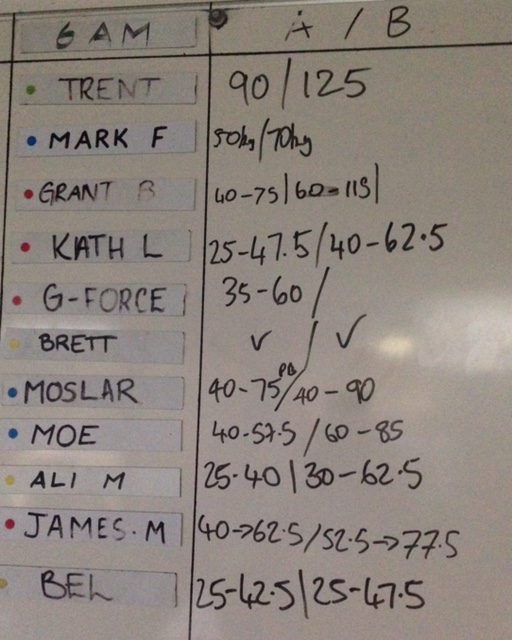 6 AM A / B
TRENT 90/125
MARK F 50kg/70kg
GRANT B 40-75|60-115|
KATH L 25-47.5/40-62.5
G-FORCE 35-60/
BRETT ✓ / ✓
MOSLAR 40-75 PB/40-90
MOE 40-57.5/60-85
ALI M 25-40|30-62.5
JAMES.M 40→62.5/52.5→77.5
BEL 25-42.5|25-47.5